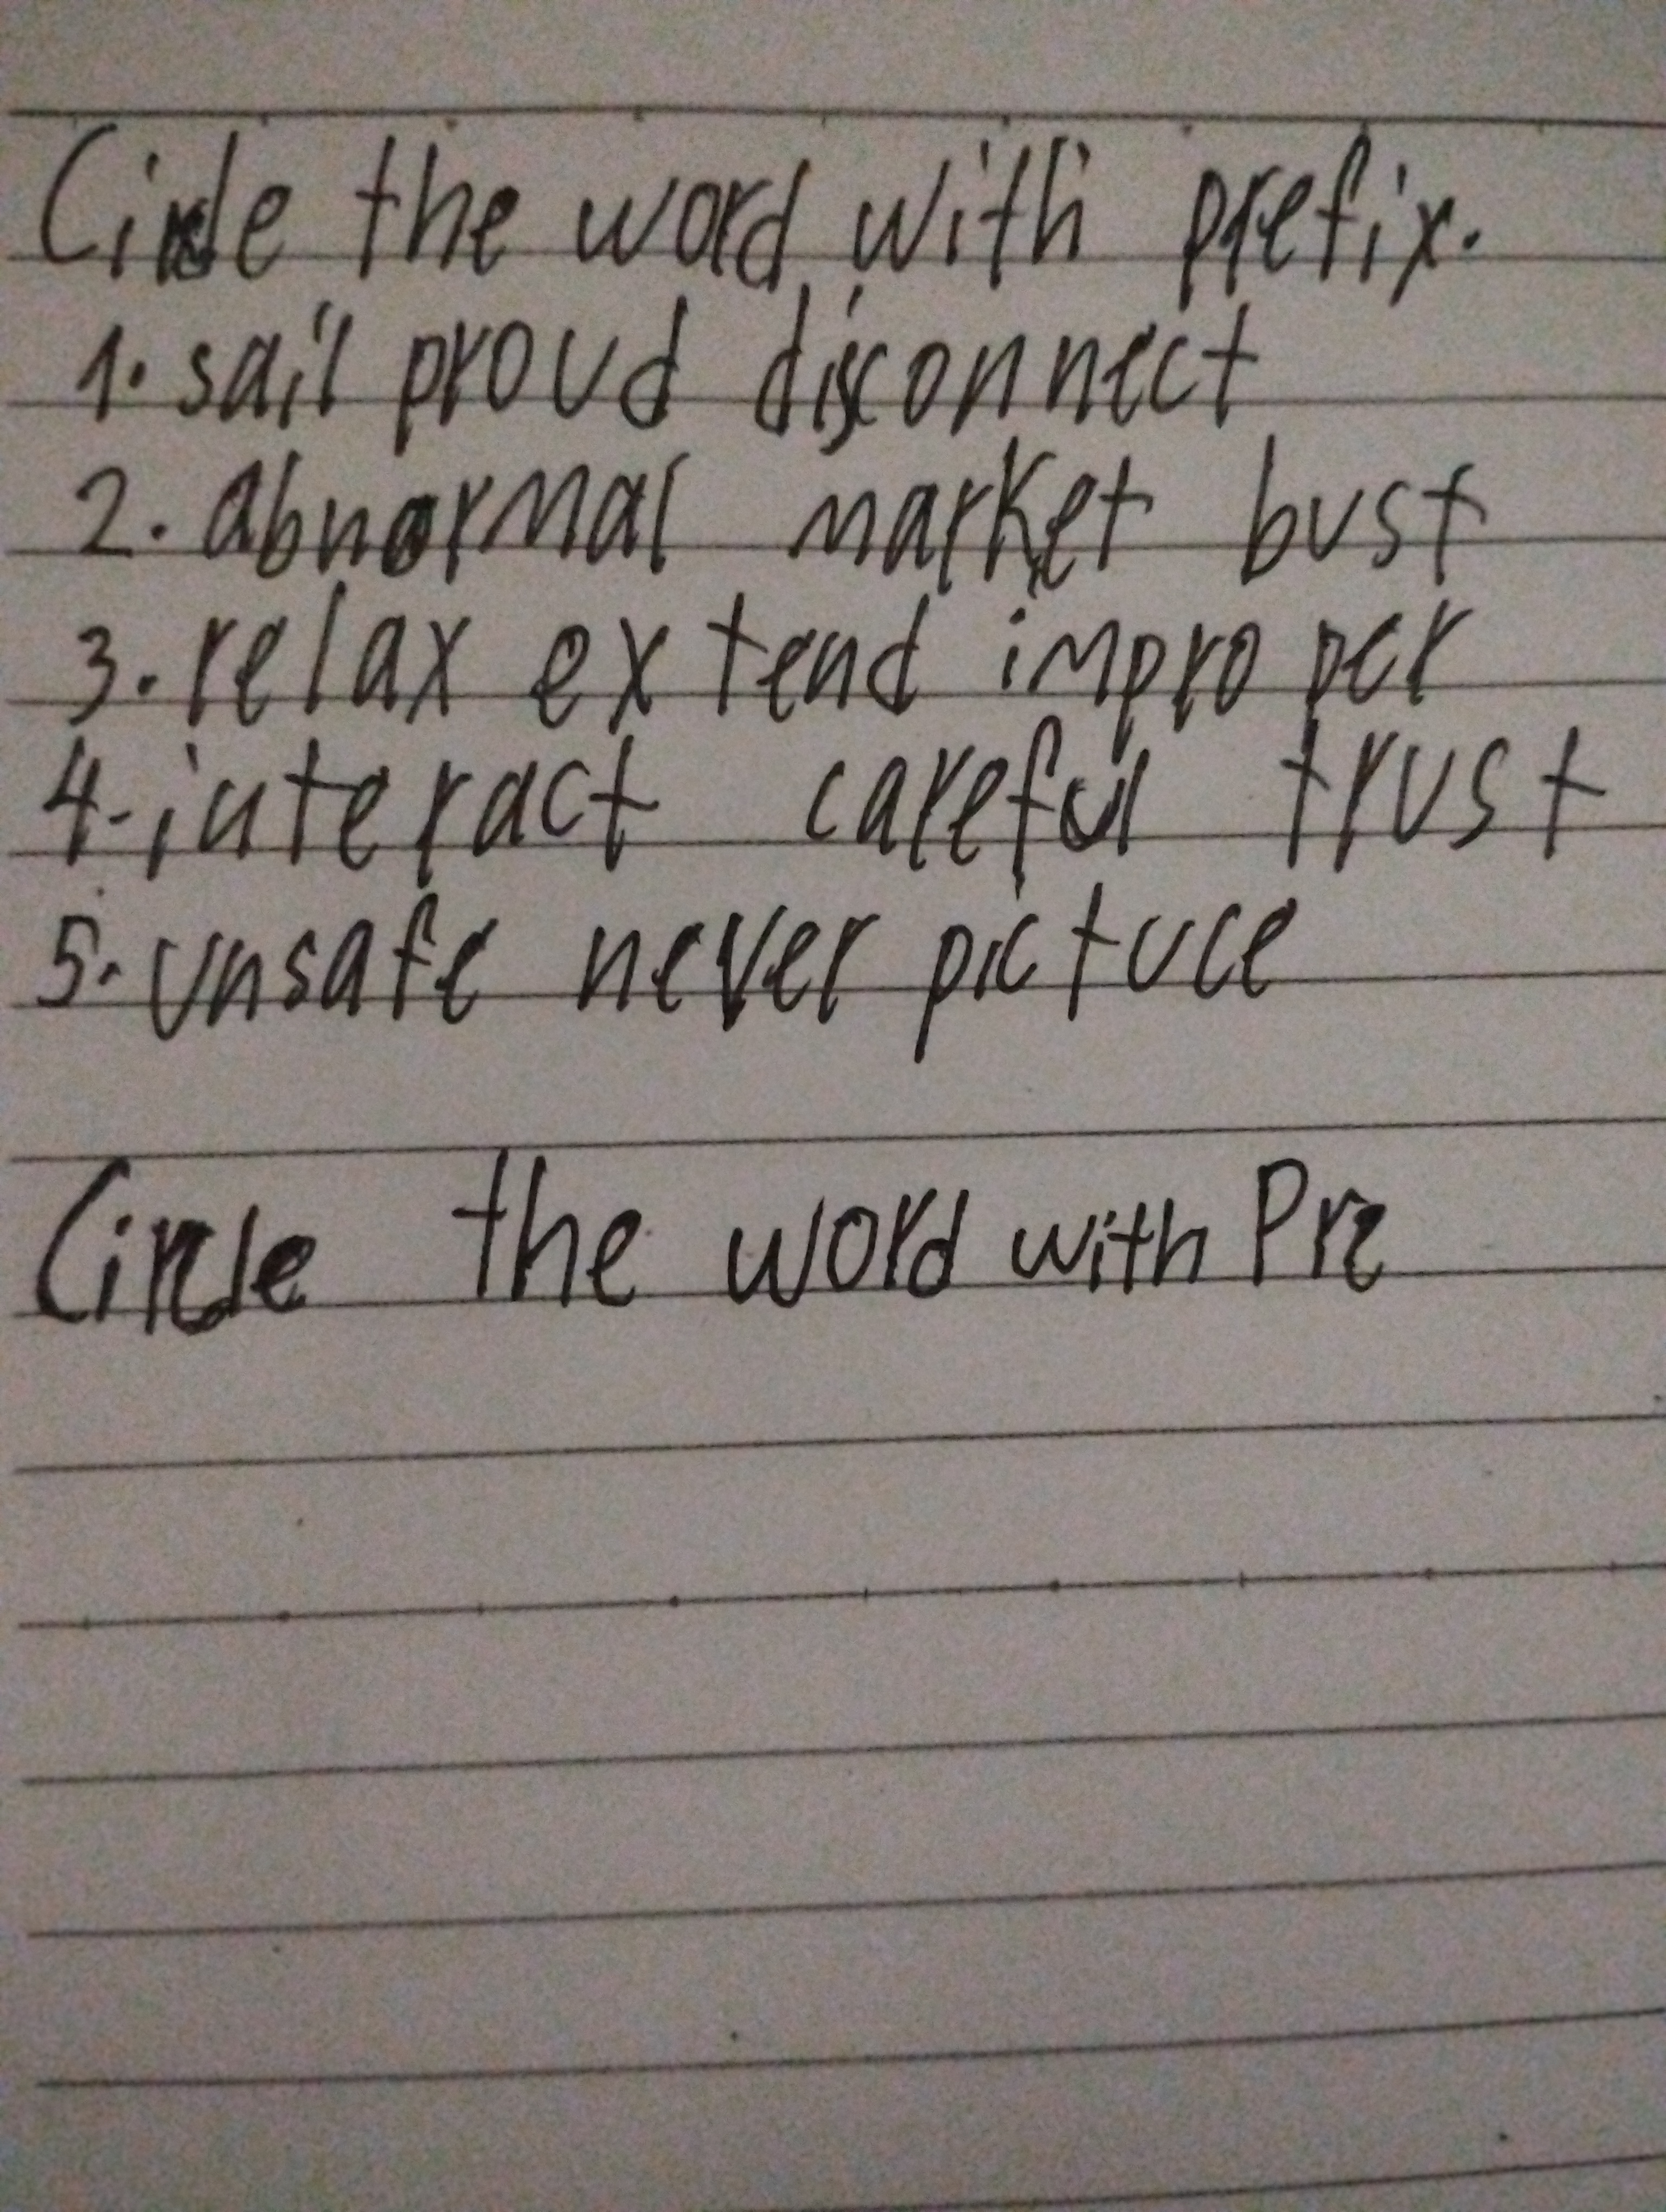 Circle the word with prefix.
1. sail proud disconnect
2. abnormal market bust
3. relax extend improper
4. interact careful trust
5. unsafe never picture
Circle the word with Pre